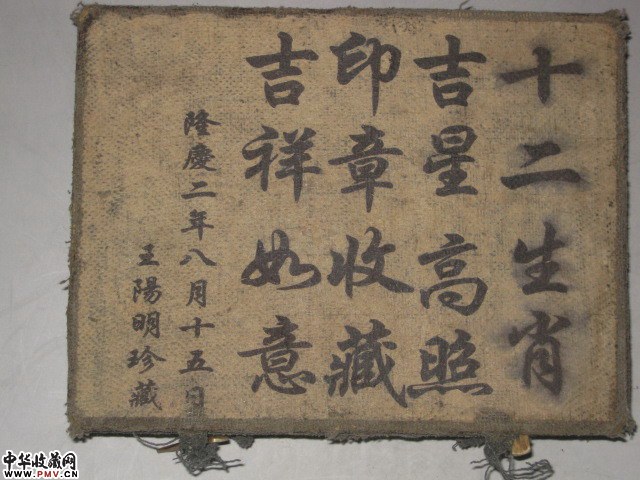 十二生肖
吉星高照
印章收藏
吉祥如意
隆慶二年八月十五日
王陽明珍藏
中华收藏网
www.PMV.CN